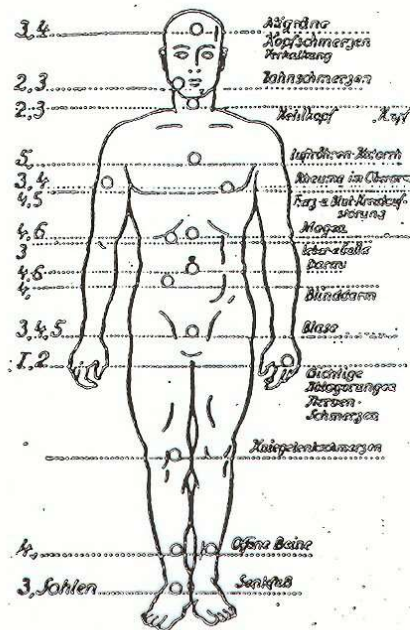 3,4 Migräne
Kopfschmerzen
Verkalkung
2,3 Zahnschmerzen
2,3 Kehlkopf
5, Luftröhren Katarrh
3,4 Rheuma im Oberarm
4,5
4,6 Magen
3 Leber u Galle
4,6 Darm
4, Blinddarm
3,4,5 Blase
1,2 Gichtige
Ablagerungen
Nerven-
Schmerzen
Kniegelenkschmerzen
4, Offene Beine
3, Sohlen Senkfuß